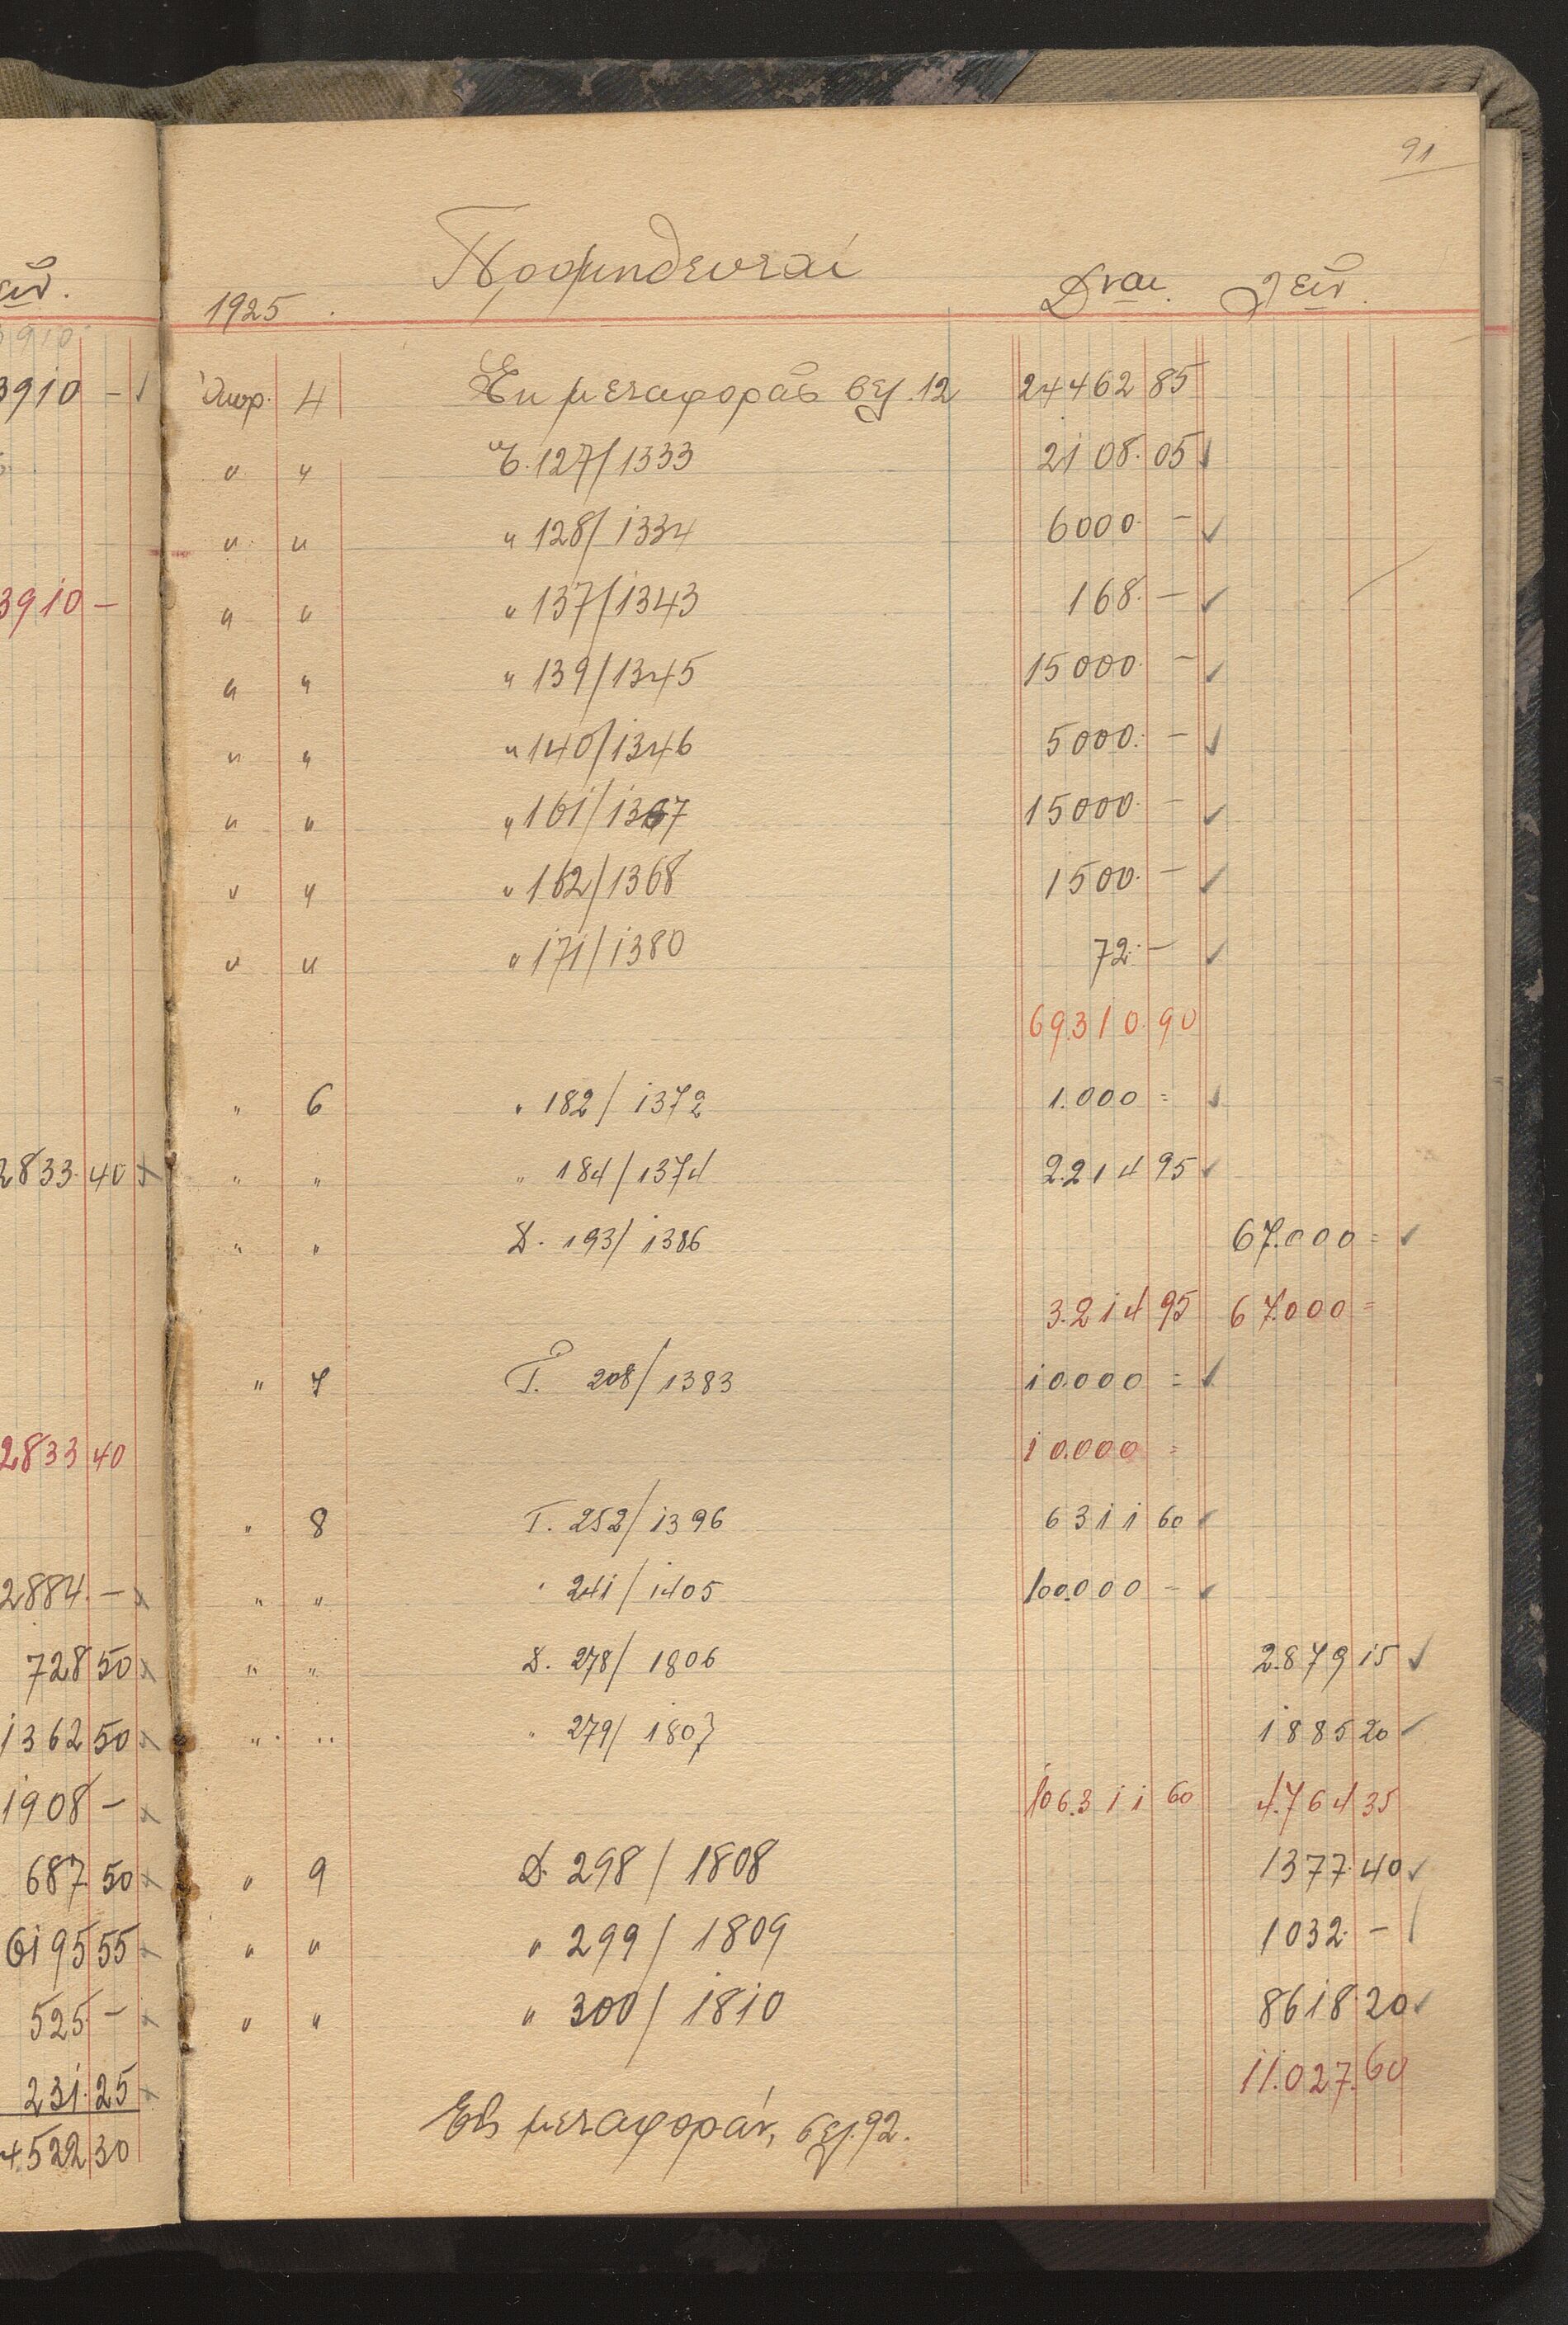 91
Προμηθευταί
1925. Δναι. Λειν.
Απρ. 4 Εκ μεταφοράς σελ. 12 24462 85
" " Τ. 127/1333 2108. 05 ✓
" " " 128/1334 6000. – ✓
" " " 137/1343 168. – ✓
" " " 139/1345 15000. – ✓
" " " 140/1346 5000. – ✓
" " " 161/1367 15000. – ✓
" " " 162/1368 1500. – ✓
" " " 171/1380 72. – ✓
69.310. 90
" 6 " 182/1372 1.000 = ✓
" " " 184/1374 2.214 95 ✓
" " Δ. 193/1386 67.000 = ✓
3.214 95 67.000 =
" 7 Τ. 208/1383 10.000 = ✓
10.000 =
" 8 Τ. 252/1396 6311 60 ✓
" " " 241/1405 100.000 – ✓
" " Δ. 278/1806 2.879 15 ✓
" " " 279/1807 1885 20 ✓
106.311 60 4.764 35
" 9 Δ. 298/1808 1377. 40 ✓
" " " 299/1809 1032. – ✓
" " " 300/1810 8618 20 ✓
11.027. 60
Εις μεταφοράν, σελ. 92.
3910 – ✓
3910 –
2833. 40
2833 40
2884. –
728 50
1362 50
1908 –
687 50
6195 55
525 –
231. 25
4.522 30